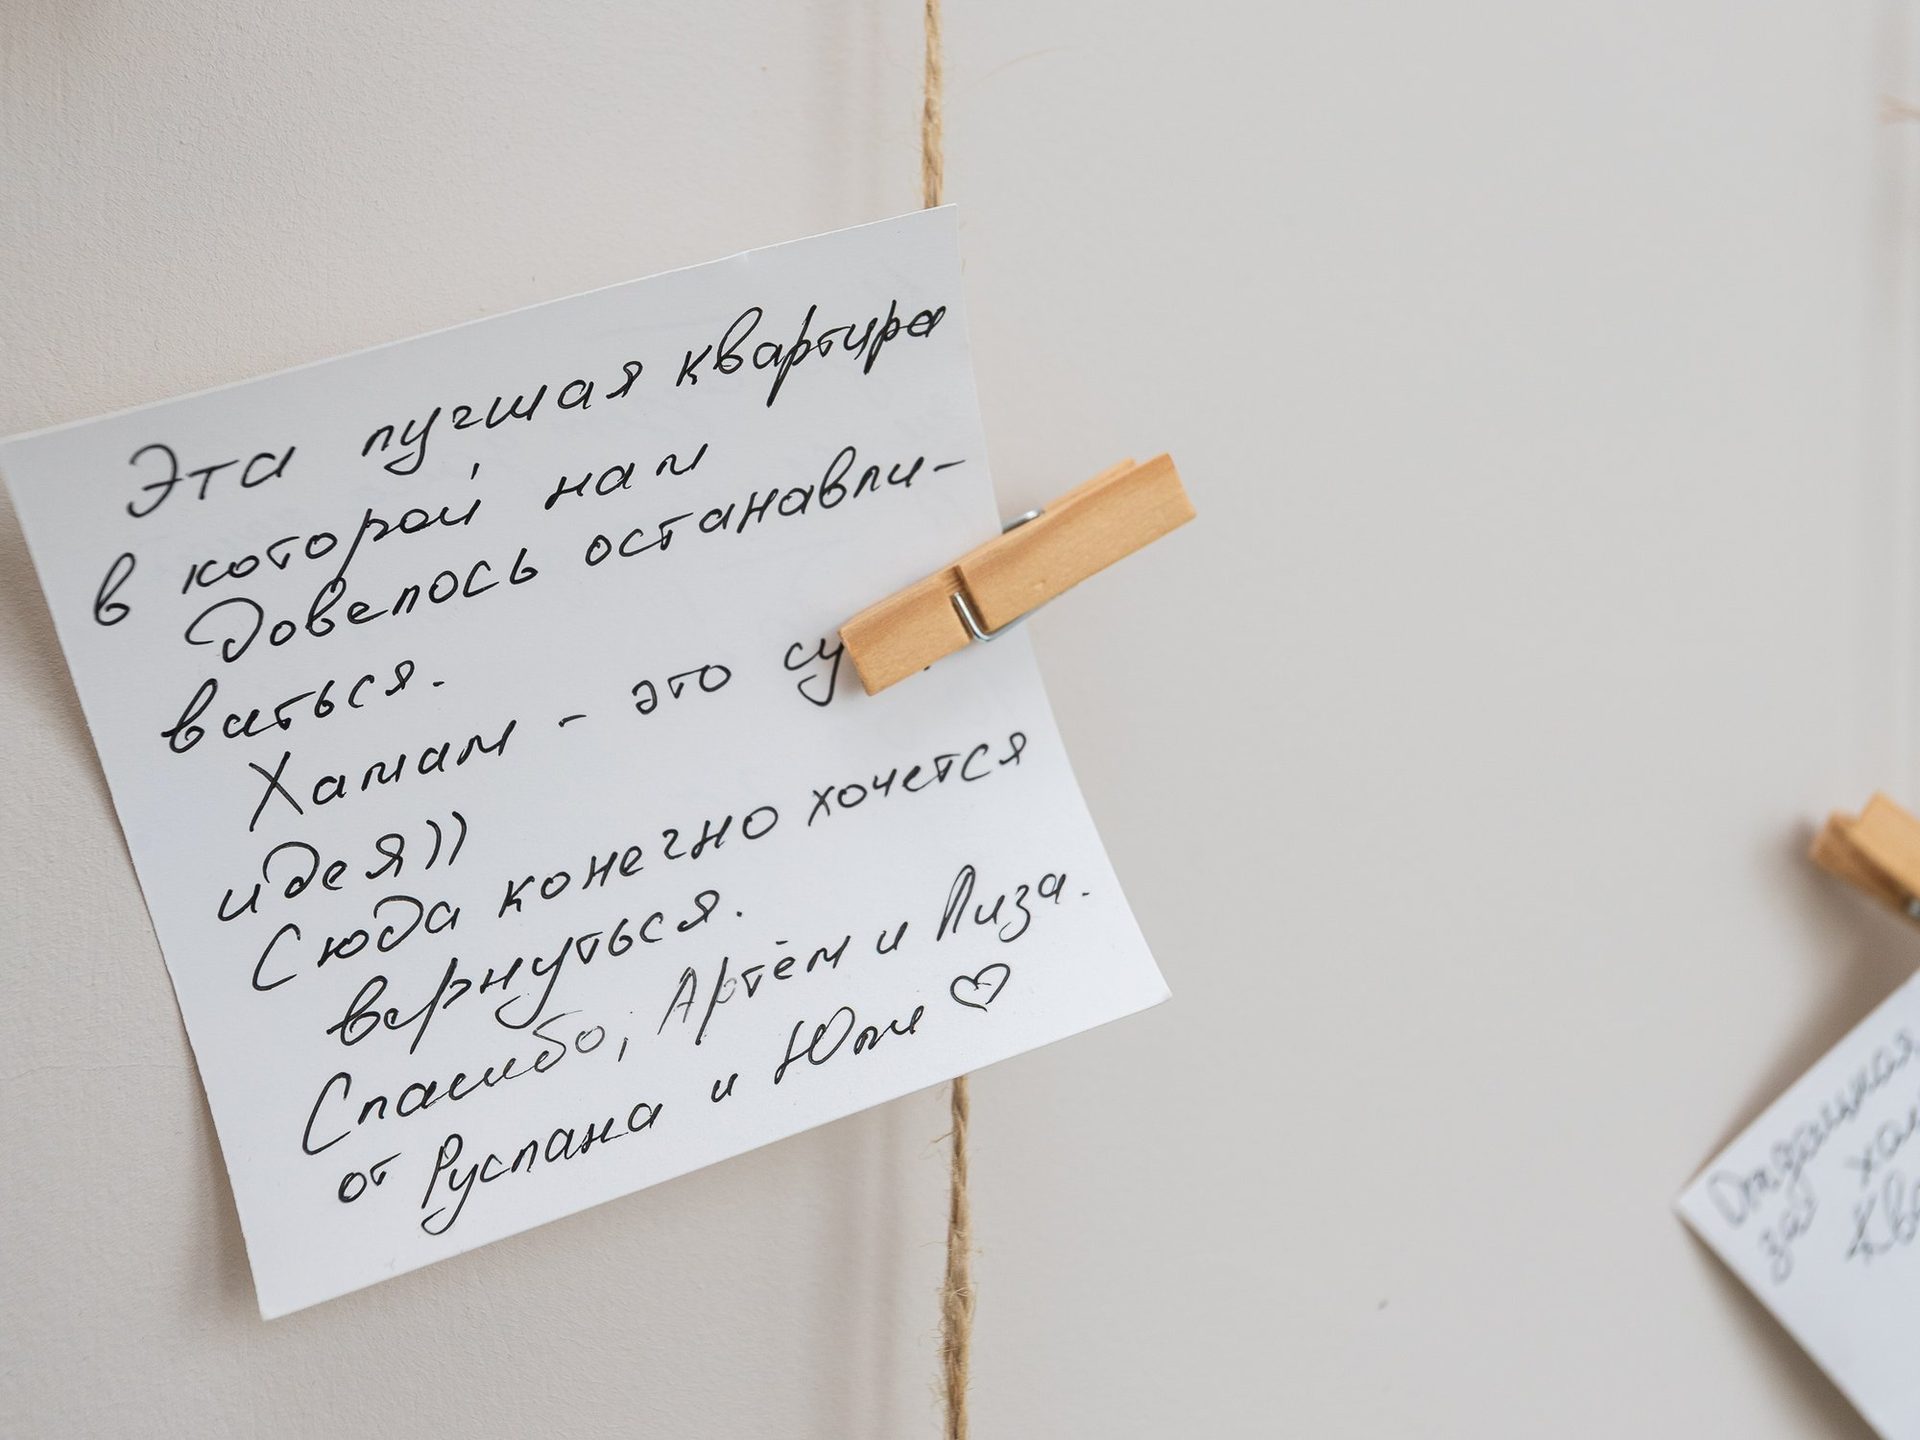 Эта лучшая квартира
в которой нам
довелось останавли-
ваться.
Хамам - это су
идея))
Сюда конечно хочется
вернуться.
Спасибо, Артём и Лиза.
от Руслана и Юли ♡
за